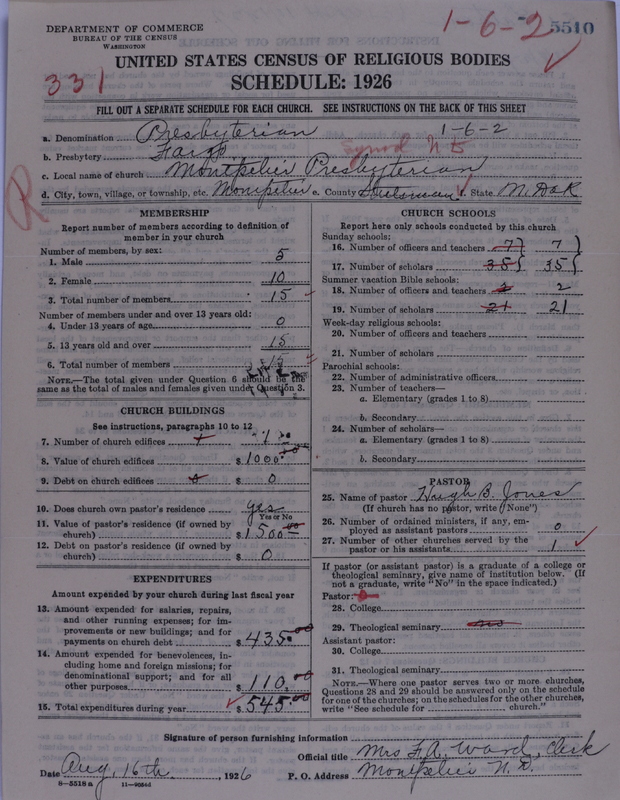 DEPARTMENT OF COMMERCE
BUREAU OF THE CENSUS
WASHINGTON
1-6-2
5510
331
UNITED STATES CENSUS OF RELIGIOUS BODIES
SCHEDULE: 1926
FILL OUT A SEPARATE SCHEDULE FOR EACH CHURCH. SEE INSTRUCTIONS ON THE BACK OF THIS SHEET
a. Denomination Presbyterian 1-6-2
b. Presbytery Fargo Synod N D
c. Local name of church Montpelier Presbyterian
d. City, town, village, or township, etc. Montpelier e. County Stutsman f. State N. Dak
R
MEMBERSHIP
Report number of members according to definition of member in your church
Number of members, by sex:
1. Male 5
2. Female 10
3. Total number of members 15
Number of members under and over 13 years old:
4. Under 13 years of age 0
5. 13 years old and over 15
6. Total number of members 15
NOTE.—The total given under Question 6 should be the same as the total of males and females given under Question 3.
CHURCH BUILDINGS
See instructions, paragraphs 10 to 12
7. Number of church edifices 1
8. Value of church edifices $1000.00
9. Debt on church edifices $ 0
10. Does church own pastor's residence yes
Yes or No
11. Value of pastor's residence (if owned by church) $1500.00
12. Debt on pastor's residence (if owned by church) $ 0
EXPENDITURES
Amount expended by your church during last fiscal year
13. Amount expended for salaries, repairs, and other running expenses; for improvements or new buildings; and for payments on church debt $435.00
14. Amount expended for benevolences, including home and foreign missions; for denominational support; and for all other purposes $110.00
15. Total expenditures during year $545.00
CHURCH SCHOOLS
Report here only schools conducted by this church
Sunday schools:
16. Number of officers and teachers 7} 7}
17. Number of scholars 35} 35}
Summer vacation Bible schools:
18. Number of officers and teachers 2 2
19. Number of scholars 21 21
Week-day religious schools:
20. Number of officers and teachers
21. Number of scholars
Parochial schools:
22. Number of administrative officers
23. Number of teachers—
a. Elementary (grades 1 to 8)
b. Secondary
24. Number of scholars—
a. Elementary (grades 1 to 8)
b. Secondary
PASTOR
25. Name of pastor Hugh B. Jones
(If church has no pastor, write "None")
26. Number of ordained ministers, if any, employed as assistant pastors 0
27. Number of other churches served by the pastor or his assistants 1
If pastor (or assistant pastor) is a graduate of a college or theological seminary, give name of institution below. (If not a graduate, write "No" in the space indicated.)
Pastor:
28. College
29. Theological seminary no
Assistant pastor:
30. College
31. Theological seminary
NOTE.—Where one pastor serves two or more churches, Questions 28 and 29 should be answered only on the schedule for one of the churches; on the schedules for the other churches, write "See schedule for church."
Signature of person furnishing information
Official title Mrs F. A. Ward, Clerk
Date Aug, 16th, 1926 P. O. Address Montpelier N. D.
8-5518a